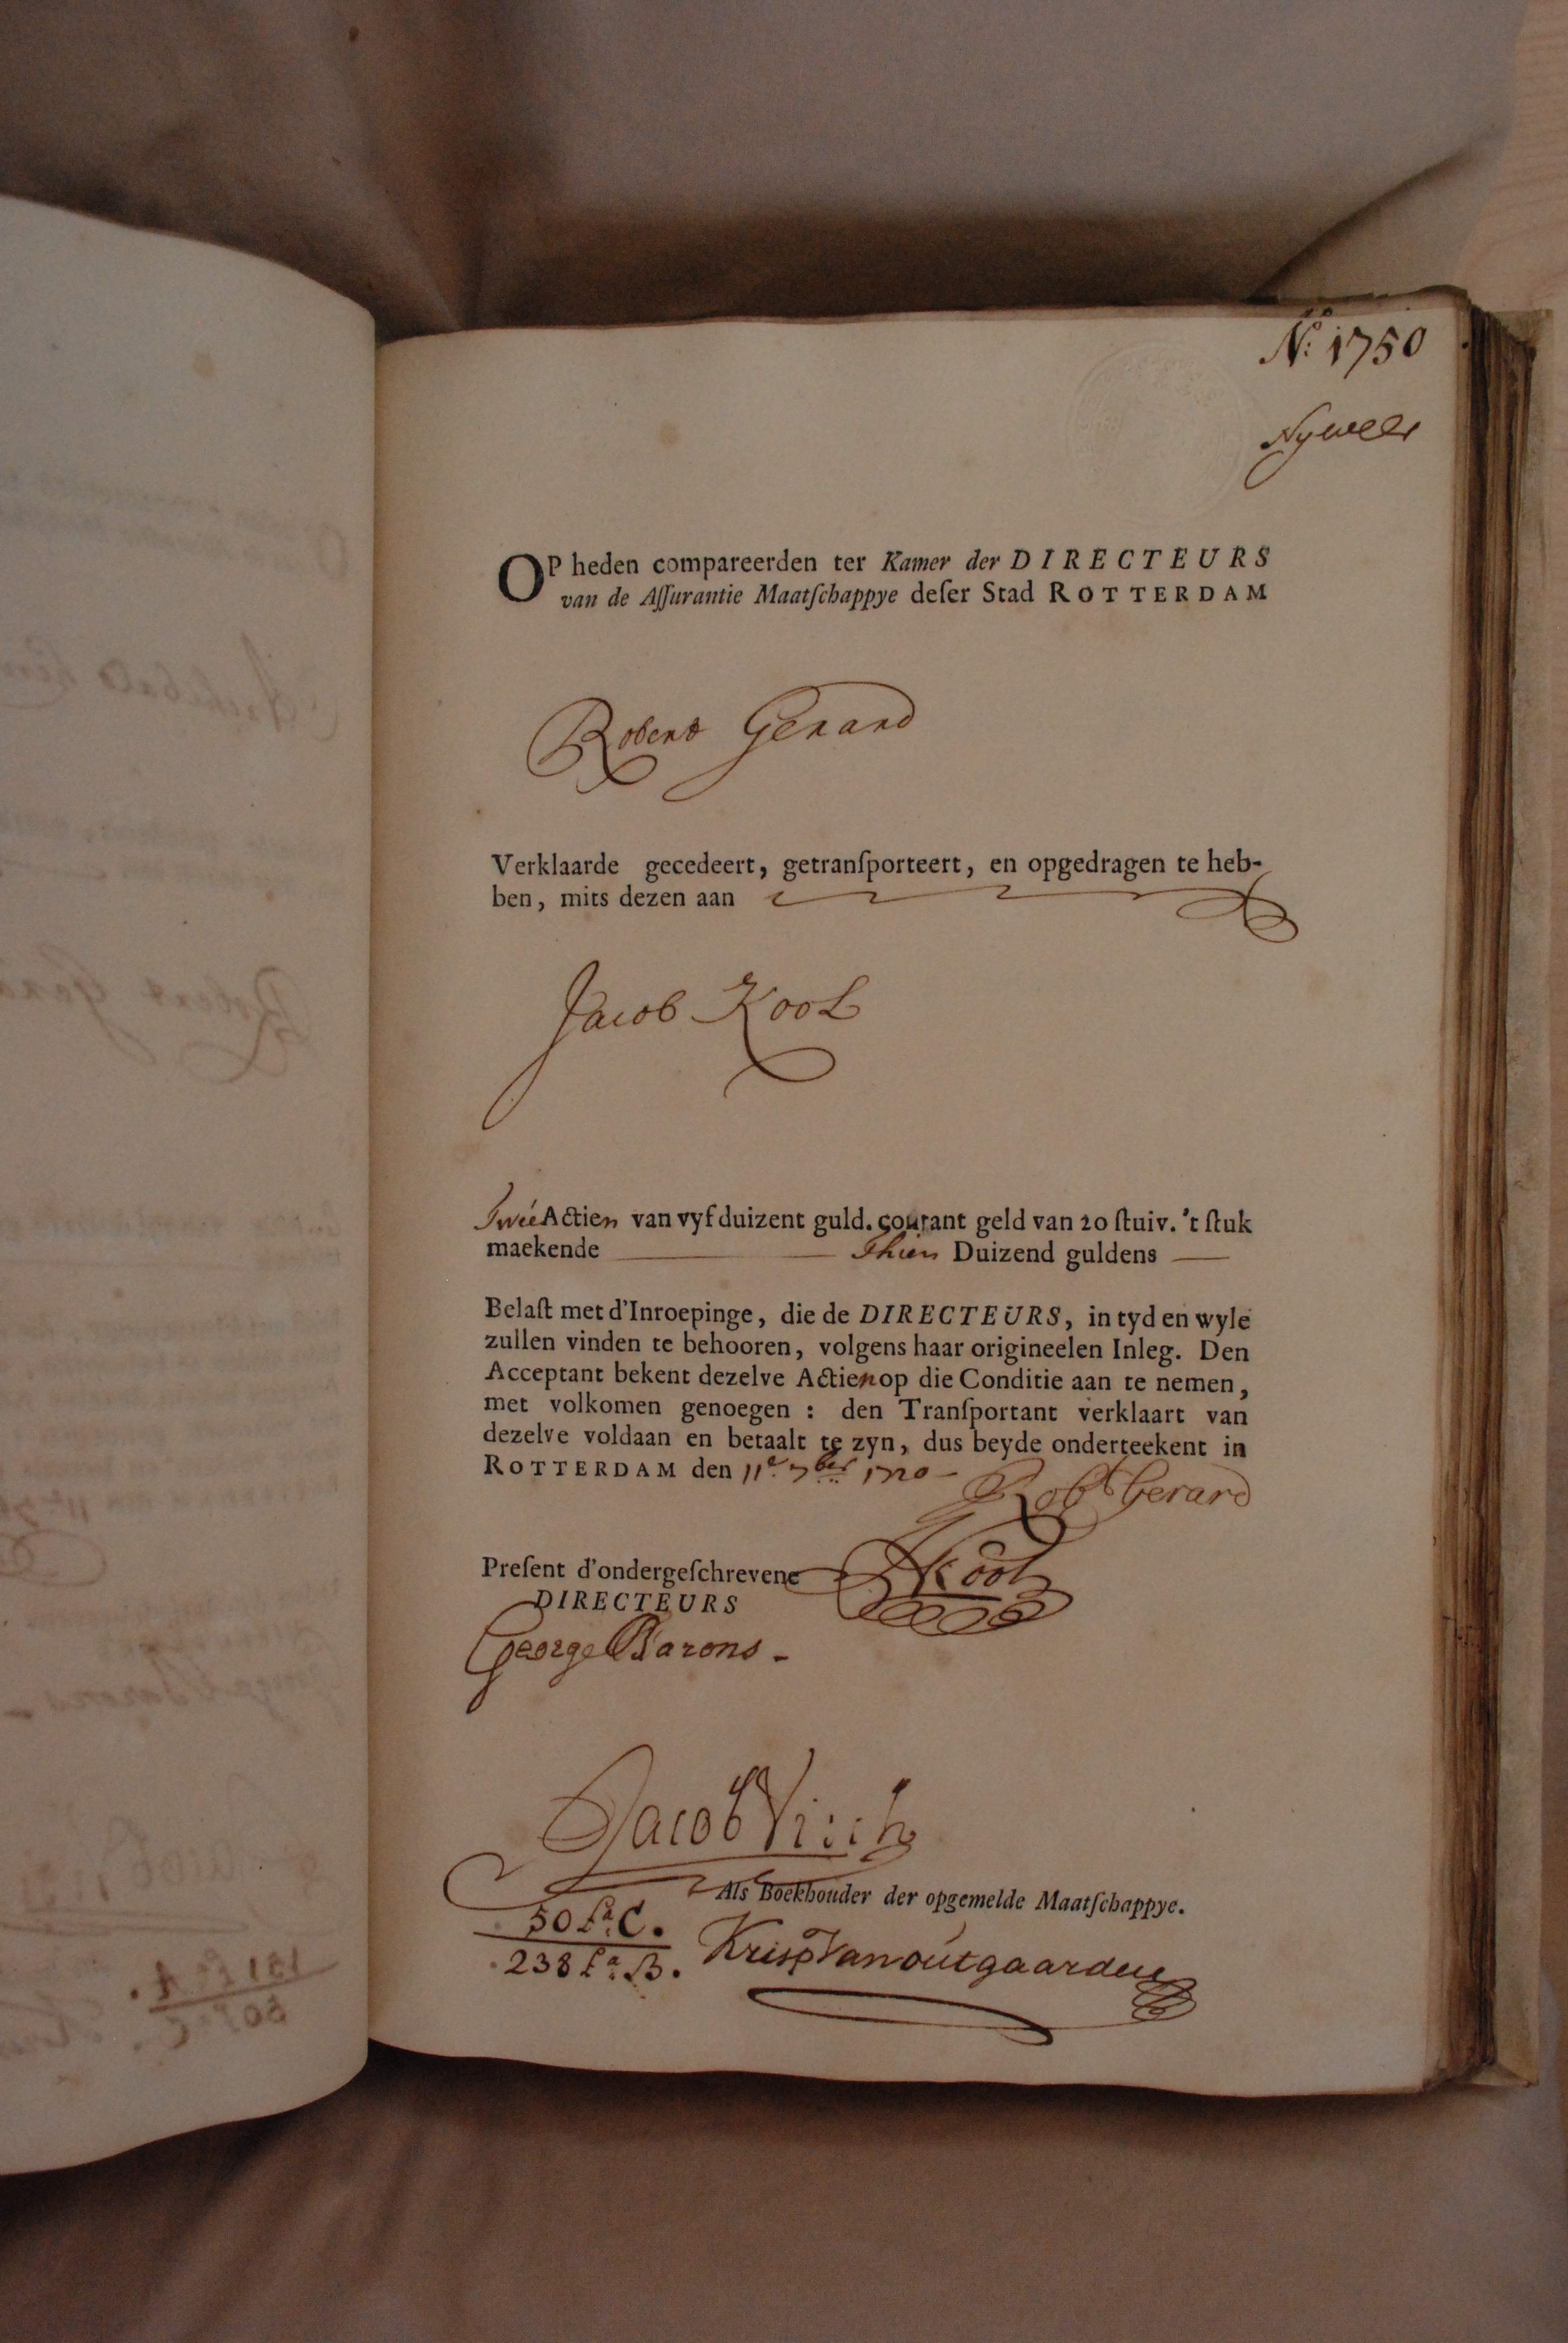 No: 1750
OP heden compareerden ter Kamer der DIRECTEURS
van de Aſſurantie Maatſchappye deſer Stad ROTTERDAM
Robert Gerard
Verklaarde gecedeert, getranſporteert, en opgedragen te heb-
ben, mits dezen aan
Jacob Kool
Twée Actien van vyf duizent guld. courant geld van 20 ſtuiv. 't ſtuk
maekende Thien Duizend guldens
Belaſt met d'Inroepinge, die de DIRECTEURS, in tyd en wyle
zullen vinden te behooren, volgens haar origineelen Inleg. Den
Acceptant bekent dezelve Actien op die Conditie aan te nemen,
met volkomen genoegen : den Tranſportant verklaart van
dezelve voldaan en betaalt te zyn, dus beyde onderteekent in
ROTTERDAM den 11e. 7ber 1720 -
Robt Gerard
Preſent d'ondergeſchrevene
Kool
DIRECTEURS
George Barons -
Jacob Visch
Als Boekhouder der opgemelde Maatſchappye.
50 fa. C.
238 fa. B.
Krisp Vanoutgaarden